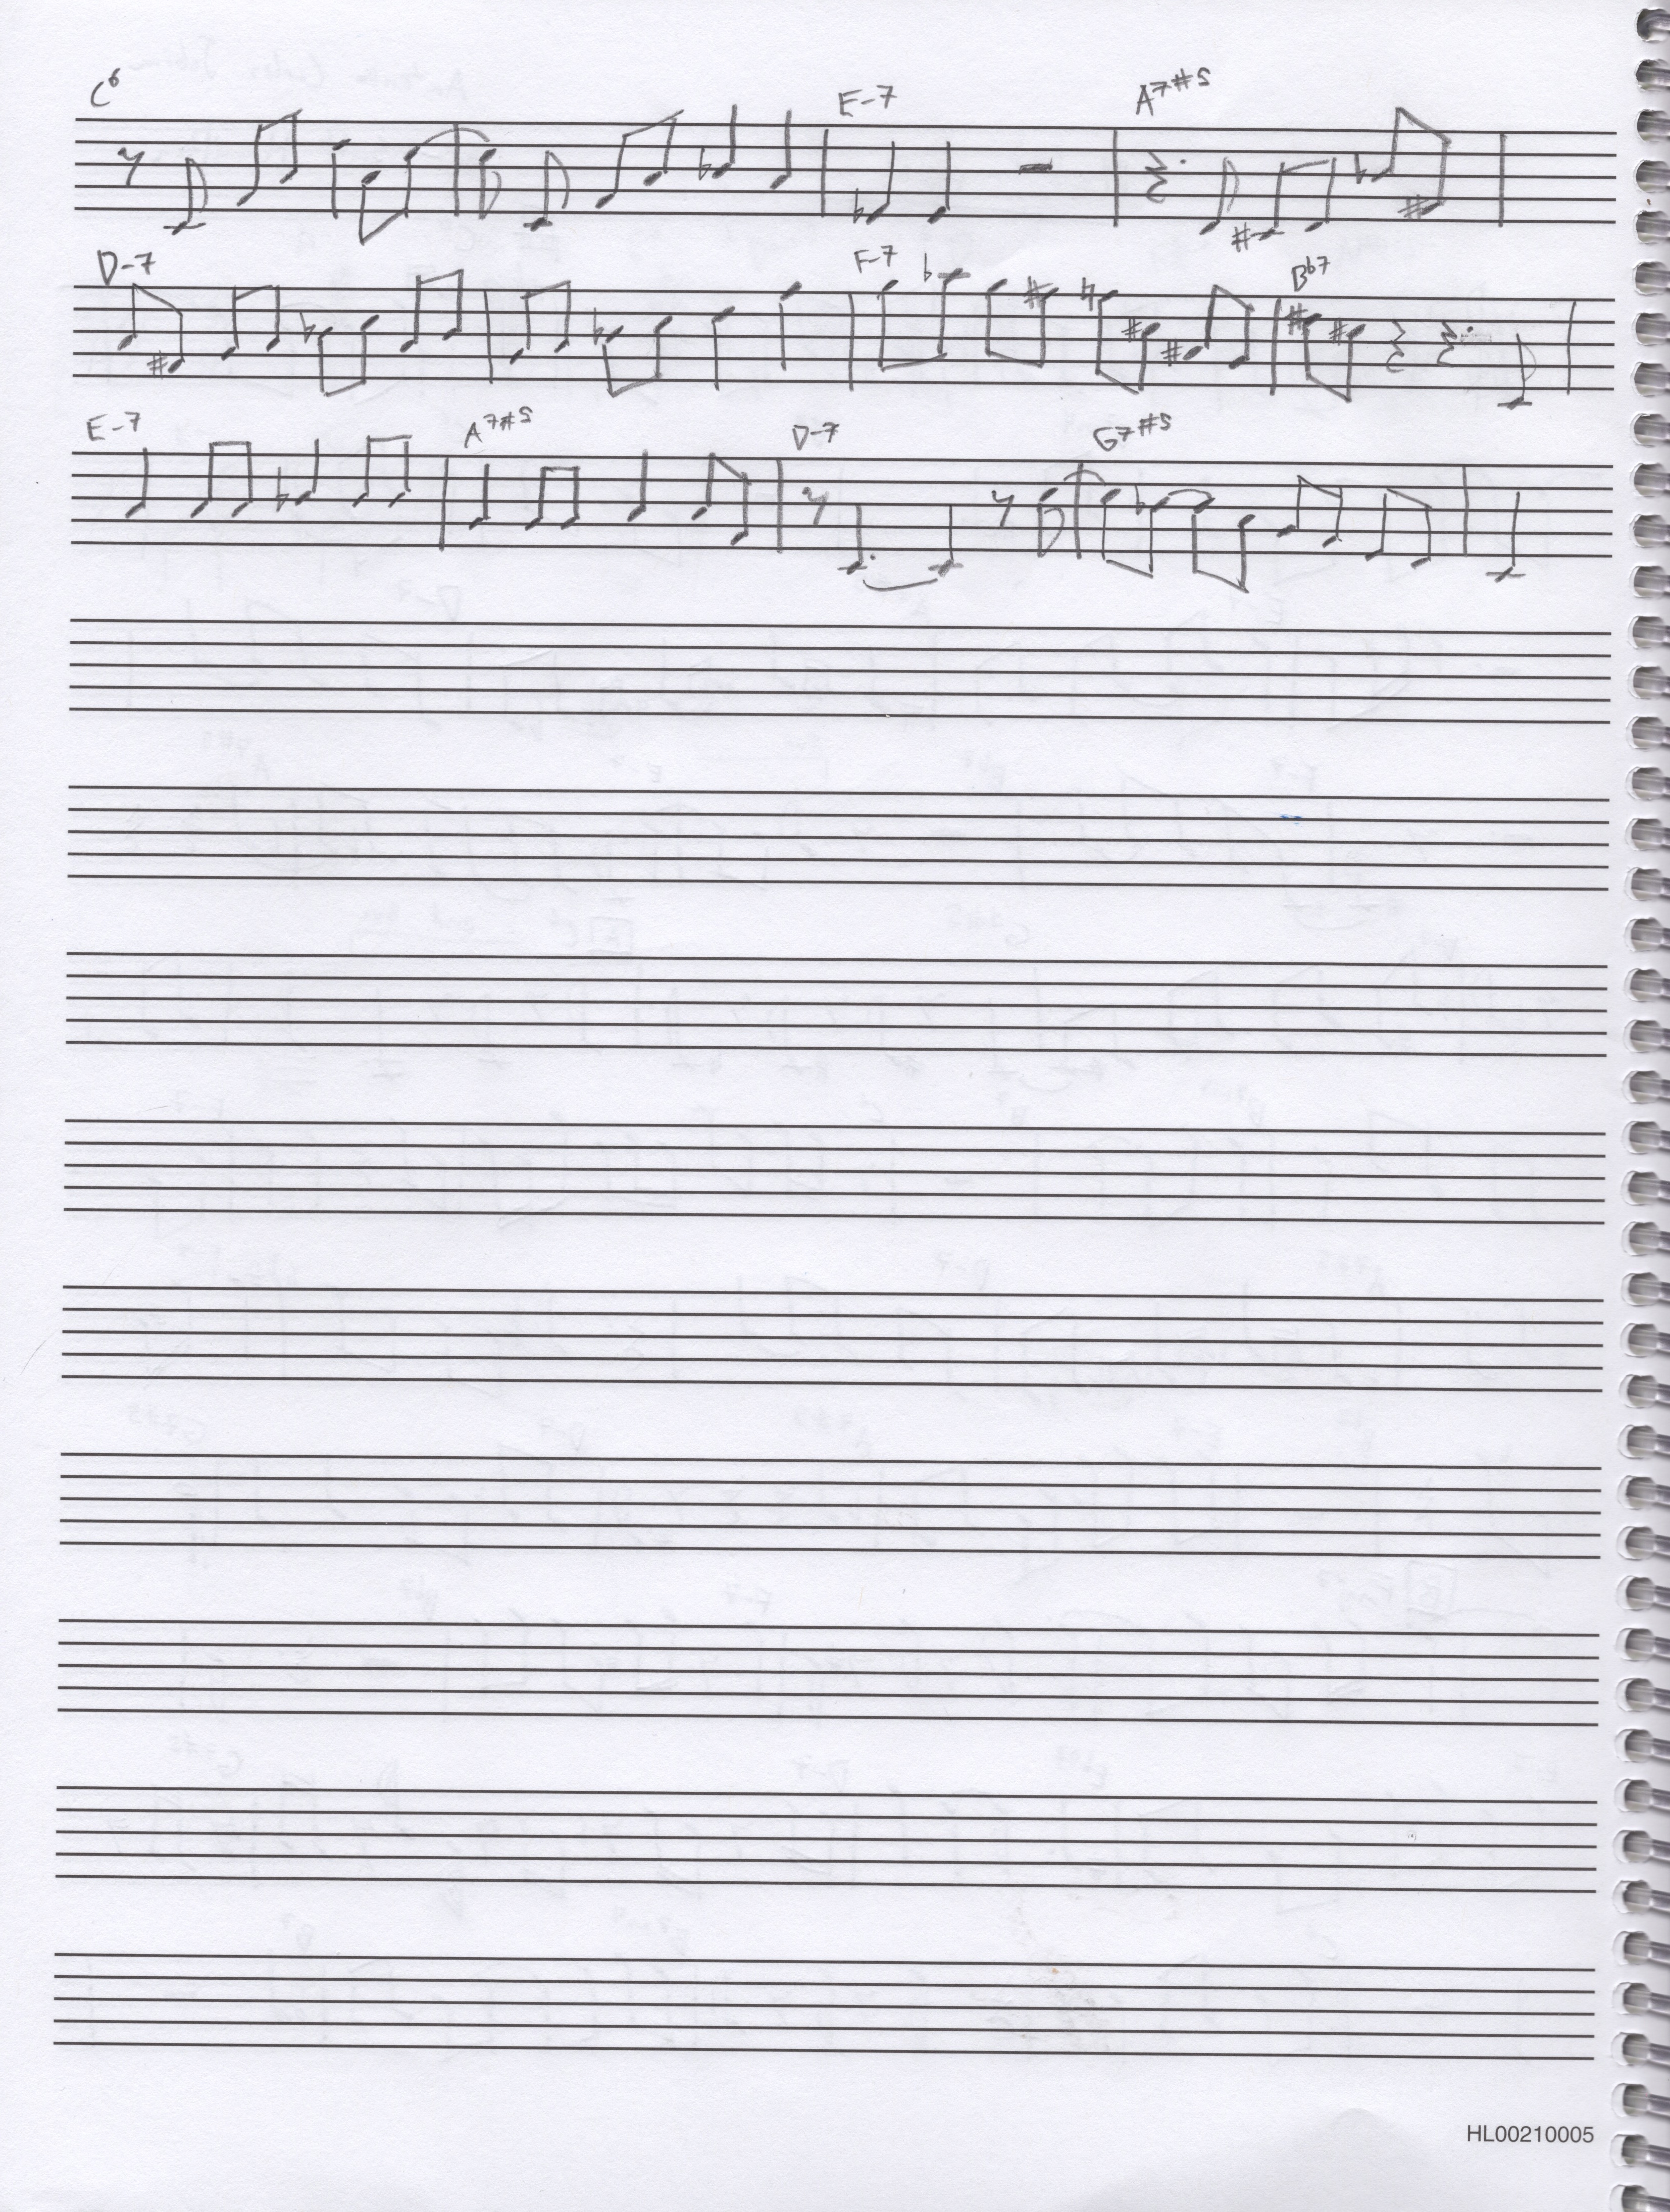 C6 E-7 A7#5
D-7 F-7 Bb7
E-7 A7#5 D-7 G7#5
HL00210005